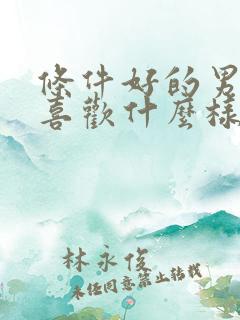 條件好的男
喜歡什麼樣
林永俊
未經同意禁止轉載